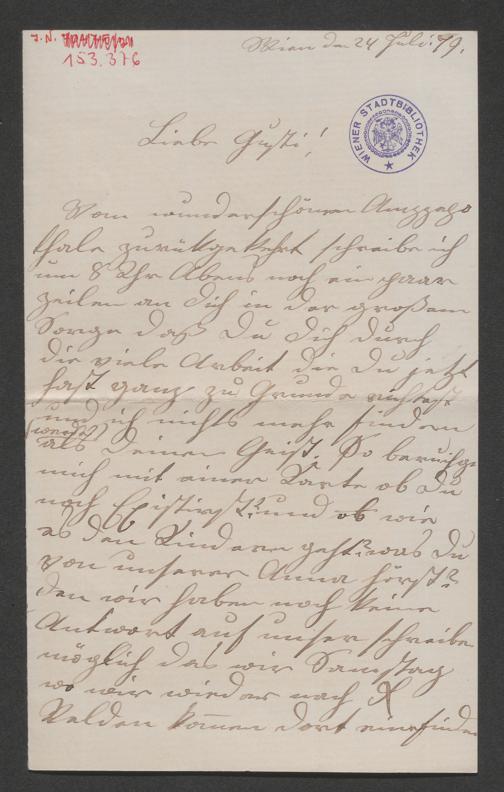 J. N.
153.376
Wien den 24 Juli. 79.
WIENER STADTBIBLIOTHEK
Liebe Gusti!
Vom wunderschönen Ampezzo
thale zurükgekehrt schreibe ich
um 8 Uhr Abens noch ein paar
zeilen an Dich in der großen
Sorge daß Du Dich durch
die viele Arbeit die Du jetzt
hast ganz zu Grunde richtest
und ich nichts mehr finden
(werde)
als Deinen Geist. So beruhige
mich mit einer Karte ob Du
noch Existirst? und ob wie
es den Kindern geht? was Du
von unserer Anna hörst?
den wir haben noch keine
Antwort auf unser schreiben
möglich das wir Samstag
wo wir wieder nach
Velden komen dort eine finden